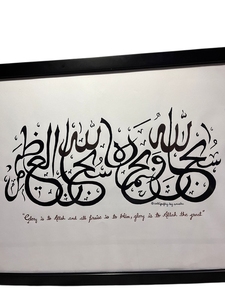 سبحان الله وبحمده سبحان الله العظيم
"Glory is to Allah and all praise is to Him, glory is to Allah the great"